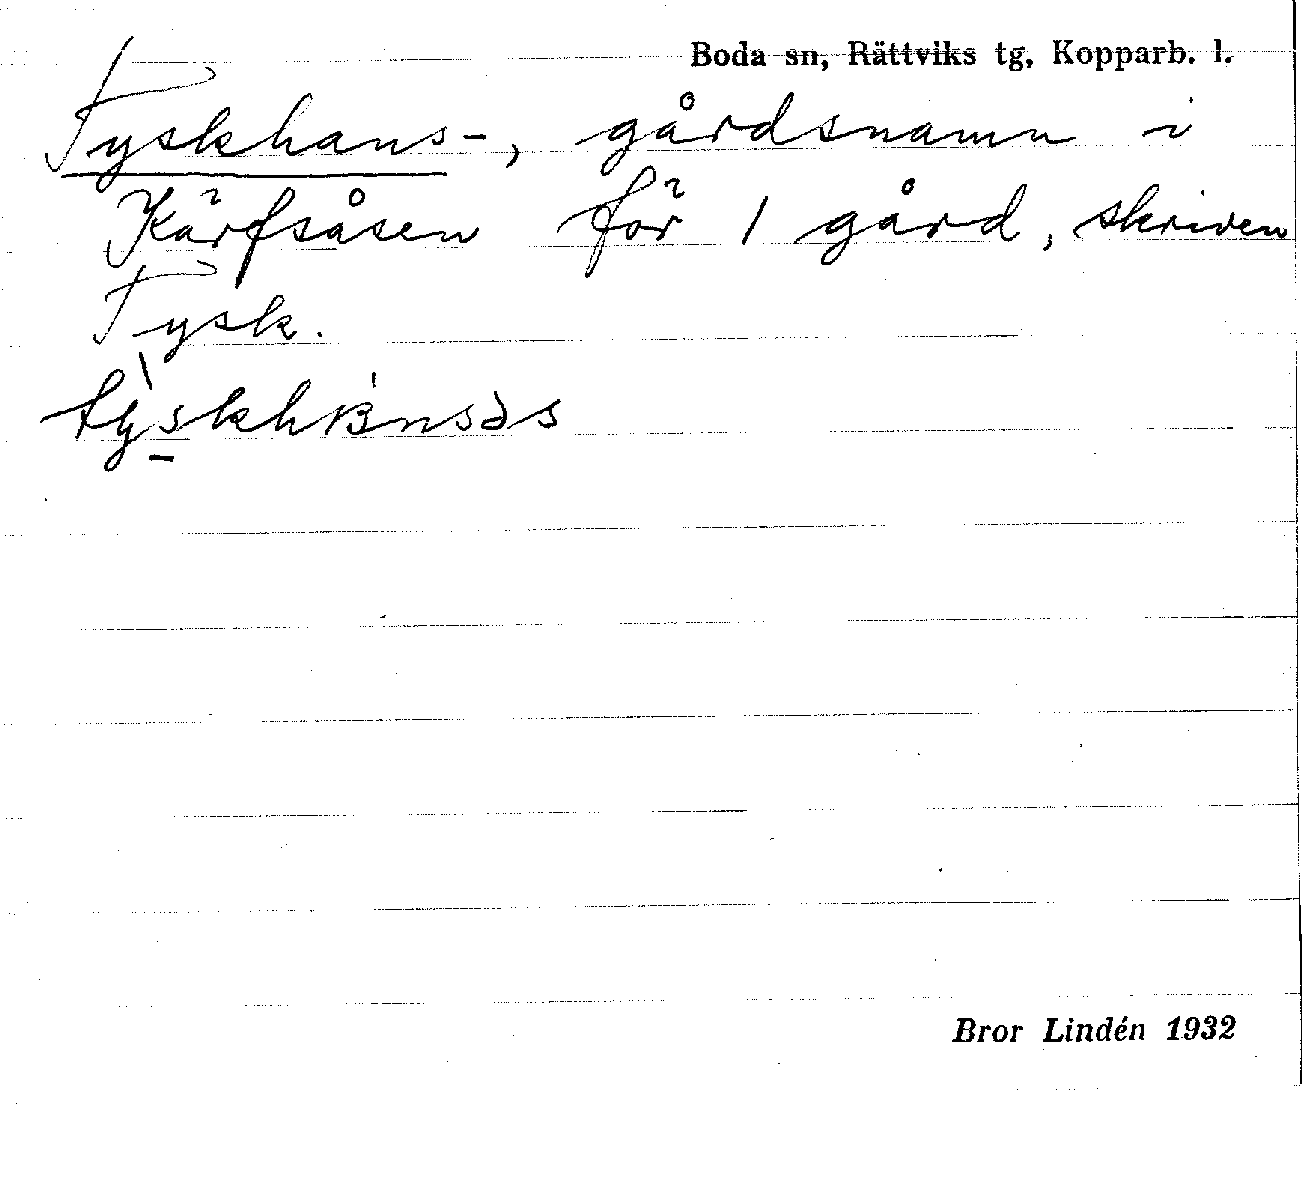 Boda sn, Rättviks tg, Kopparb. l.
Tyskhans-, gårdsnamn i
Kärfsåsen för 1 gård, skriven
Tysk.
Bror Lindén 1932